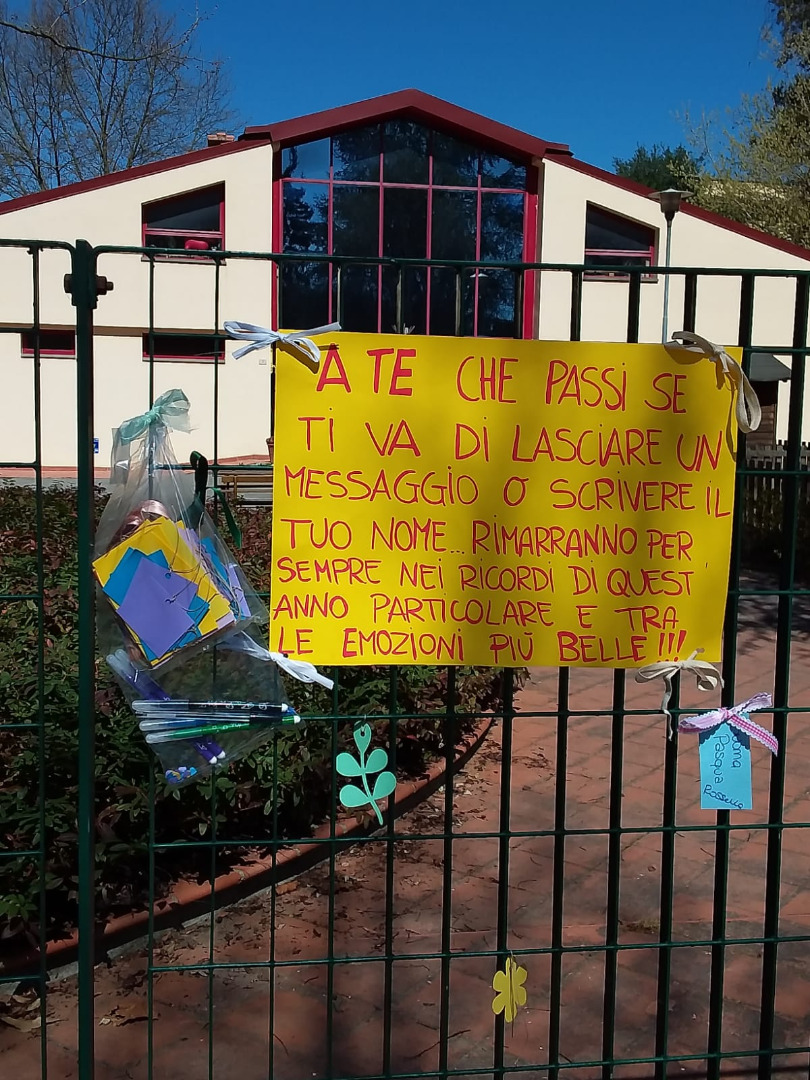 A TE CHE PASSI SE
TI VA DI LASCIARE UN
MESSAGGIO O SCRIVERE IL
TUO NOME... RIMARRANNO PER
SEMPRE NEI RICORDI DI QUEST
ANNO PARTICOLARE E TRA
LE EMOZIONI PIÙ BELLE!!!
Pasqua